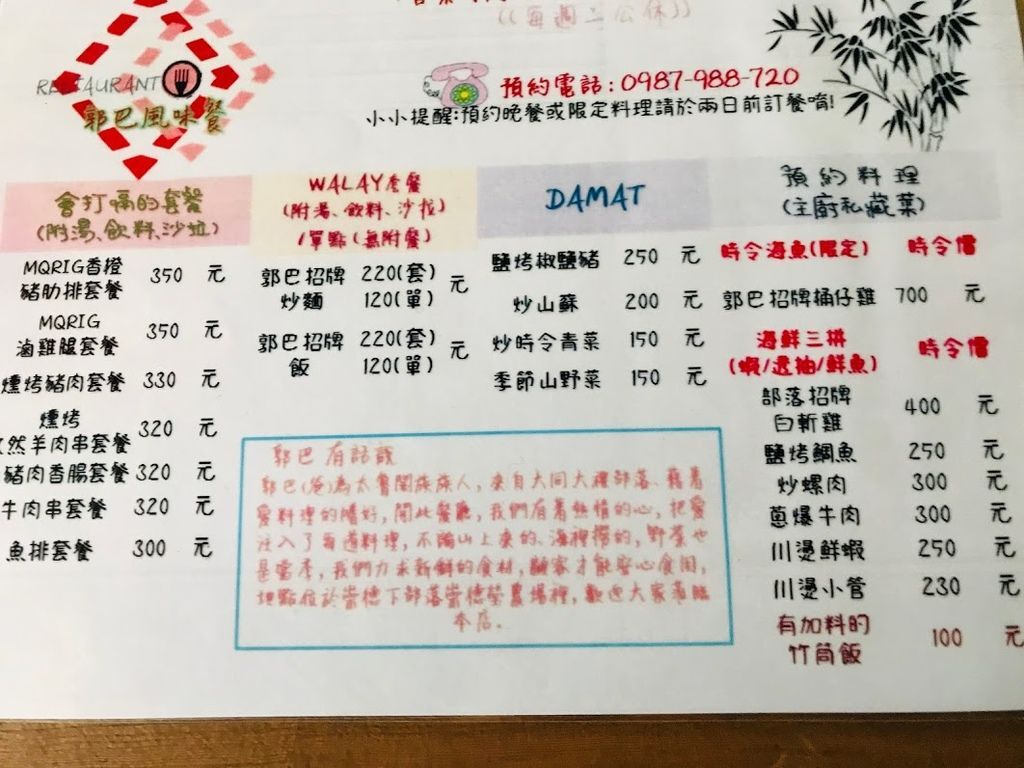 ((每週二公休))
RESTAURANT
郭巴風味餐
預約電話:0987-988-720
小小提醒:預約晚餐或限定料理請於兩日前訂餐唷!
會打嗝的套餐
(附湯、飲料、沙拉)
MQRIG香橙
豬肋排套餐 350 元
MQRIG
滷雞腿套餐 350 元
燻烤豬肉套餐 330 元
燻烤
然羊肉串套餐 320 元
豬肉香腸套餐 320 元
牛肉串套餐 320 元
魚排套餐 300 元
WALAY套餐
(附湯、飲料、沙拉)
/單點(無附餐)
郭巴招牌 220(套) 元
炒麵 120(單)
郭巴招牌 220(套) 元
飯 120(單)
DAMAT
鹽烤椒鹽豬 250 元
炒山蘇 200 元
炒時令青菜 150 元
季節山野菜 150 元
預約料理
(主廚私藏菜)
時令海魚(限定) 時令價
郭巴招牌桶仔雞 700 元
海鮮三拼 時令價
(蝦/透抽/鮮魚)
部落招牌
白斬雞 400 元
鹽烤鯛魚 250 元
炒螺肉 300 元
蔥爆牛肉 300 元
川燙鮮蝦 250 元
川燙小管 230 元
有加料的
竹筒飯 100 元
郭巴有話說
郭巴(爸)為太魯閣族族人,來自大同大禮部落、藉著
愛料理的嗜好,開此餐廳,我們有著熱情的心,把愛
注入了每道料理,不論山上來的、海裡撈的,野菜也
是當季,我們力求新鮮的食材,顧客才能安心食用,
地點位於崇德下部落崇德瑩農場裡,歡迎大家蒞臨
本店.